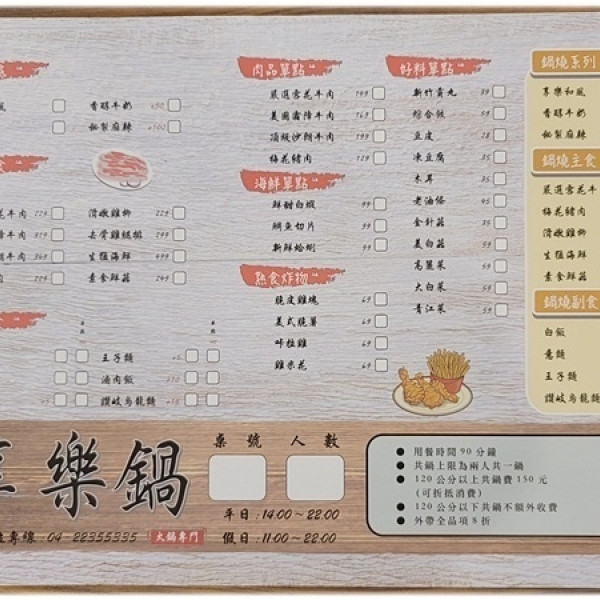 香醇牛奶 +50
秘製麻辣 +100
牛肉 229 滑嫩雞柳 229
牛肉 319 去骨雞腿排 299
牛肉 369 生猛海鮮 499
249 素食鮮菇 249
王子麵
滷肉飯
讚岐烏龍麵
肉品單點
嚴選雪花牛肉 149
美國霜降牛肉 169
頂級沙朗牛肉 199
梅花豬肉 129
海鮮單點
鮮甜白蝦 99
鯛魚切片 99
新鮮蛤蜊 99
熟食炸物
脆皮雞塊 69
美式脆薯 69
咔拉雞 69
雞米花 69
好料單點
新竹貢丸 39
綜合餃 59
豆皮 28
凍豆腐 35
木耳 35
老油條 45
金針菇 35
美白菇 59
高麗菜 59
大白菜 59
青江菜 59
鍋燒系列
享樂和風
香醇牛奶
秘製麻辣
鍋燒主食
嚴選雪花牛
梅花豬肉
滑嫩雞柳
生猛海鮮
素食鮮菇
鍋燒副食
白飯
意麵
王子麵
讚岐烏龍麵
享樂鍋
桌號 人數
平日：14:00~22:00
專線 04-22355335 火鍋專門 假日：11:00~22:00
● 用餐時間90分鐘
● 共鍋上限為兩人共一鍋
● 120公分以上共鍋費150元
(可折抵消費)
● 120公分以下共鍋不額外收費
● 外帶全品項8折